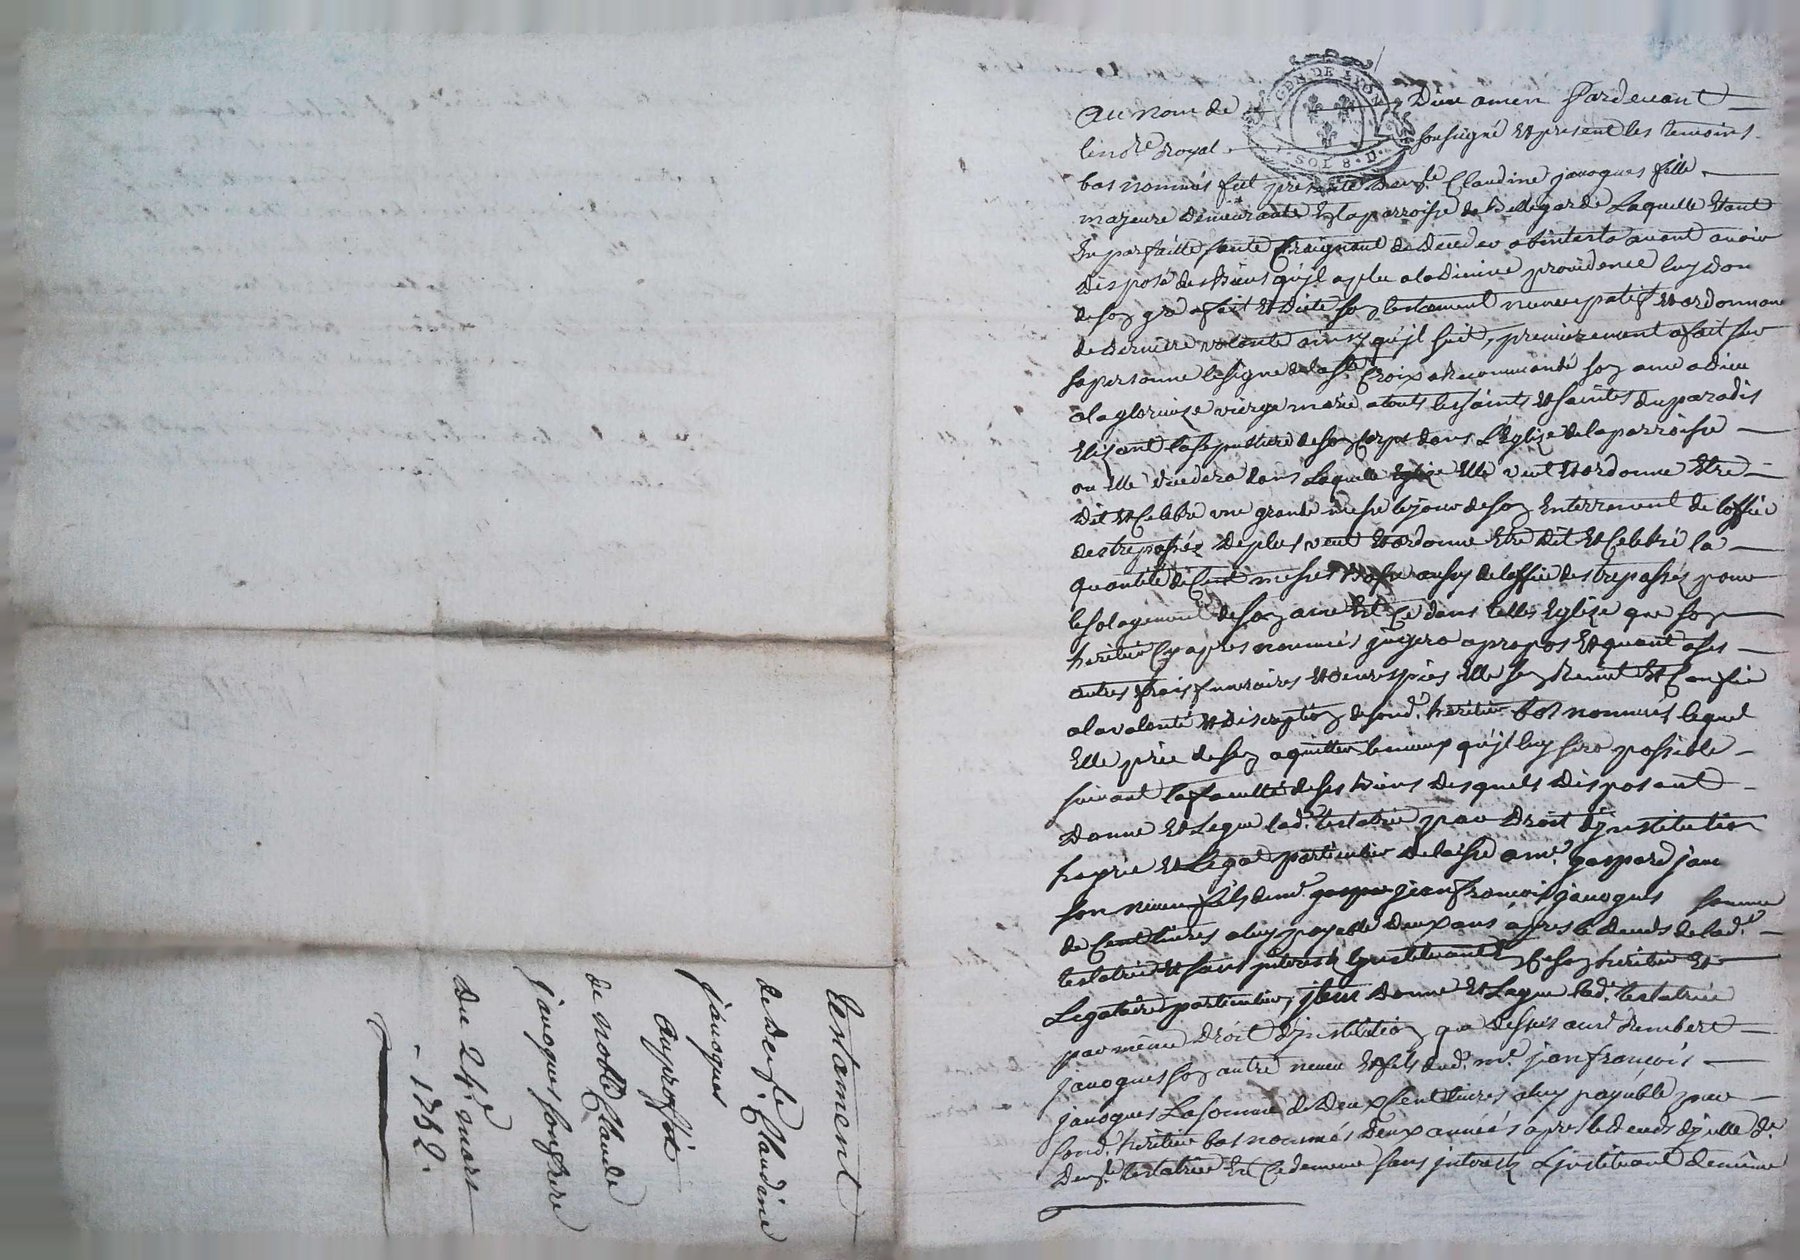 Testament
de De.lle Claudine
javogues
Au proffit
de noble Claude
javogues son frere
Du 24e mars
- 1752.
GEN DE LYON
SOL 8. D.
Au nom de Dieu amen Pardevant
le no.re royal soussigné Et present les temoins
bas nommés fut presente Dem.lle Claudine javogues fille
majeure demeurante En la parroisse de Bellegarde Laquelle Etant
En parfaitte santé Craignant de deceder abintestat avant avoir
disposé des Biens qu'jl a plu a la divine providence luy Don
de son gré a fait Et dicté son testament nuncupatif Et ordonnan
de derniere volonté ainsy qu'jl suit, premierement a fait sur
sa personne le signe de la S.te Croix a Recommandé son ame a Dieu
a la glorieuse vierge marie, a touts les saints Et saintes du paradis
Elisant la sepulture de son Corps dans L'Eglize de la parroisse
ou Elle decedera dans Laquelle Eglize Elle veut Et ordonne Etre
Dit Et Celebré une grande messe le jour de son Enterrement de l'office
des trepassés De plus veut Et ordonne Etre Dit Et Celebré la
quantité de Cent messes Basse aussy de l'office des trepassés pour
le solagement de son ame Et Ce dans telles Eglize que son
heritier Cy apres nommés jugera a propos Et quant a ses
autres frais funeraires Et oeuvres pies Elle s'en Remet Et Confie
a la volonté Et discreption de sond. heritier bas nommés lequel
Elle prie de s'en aquitter le mieux qu'jl luy sera possible
suivant la faculté de ses biens Desquels Disposant
Donne Et Legue lad. testatrice par Droit d'jnstitution
hoyrie Et Legat particulier delaisse a m.e gaspard jaue
son neveu fils de m.e jean francois javogues somme
de Cent livres a luy payable deux ans apres le deceds de lad.e
testatrice Et sans jnterest L'jnstituant En Ce son heritier Et
Legataire particulier, jtem Donne Et Legue lad. testatrice
par même Droit d'jnstitution que dessus au s.r humbert
javogues son autre neveu Et fils dud. m.e jean françois
javogues La somme de Deux Cent livres a luy payable par
sond. heritier bas nommés Deux années apres le deceds d'jcelle d.e
Dem.lle testatrice Et Ce de meme sans jnterest L'jnstituant de même